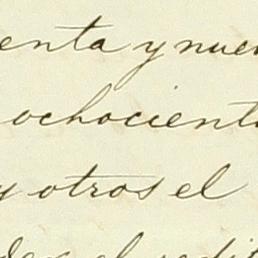 enta y nue
ochocient
y otros el
el